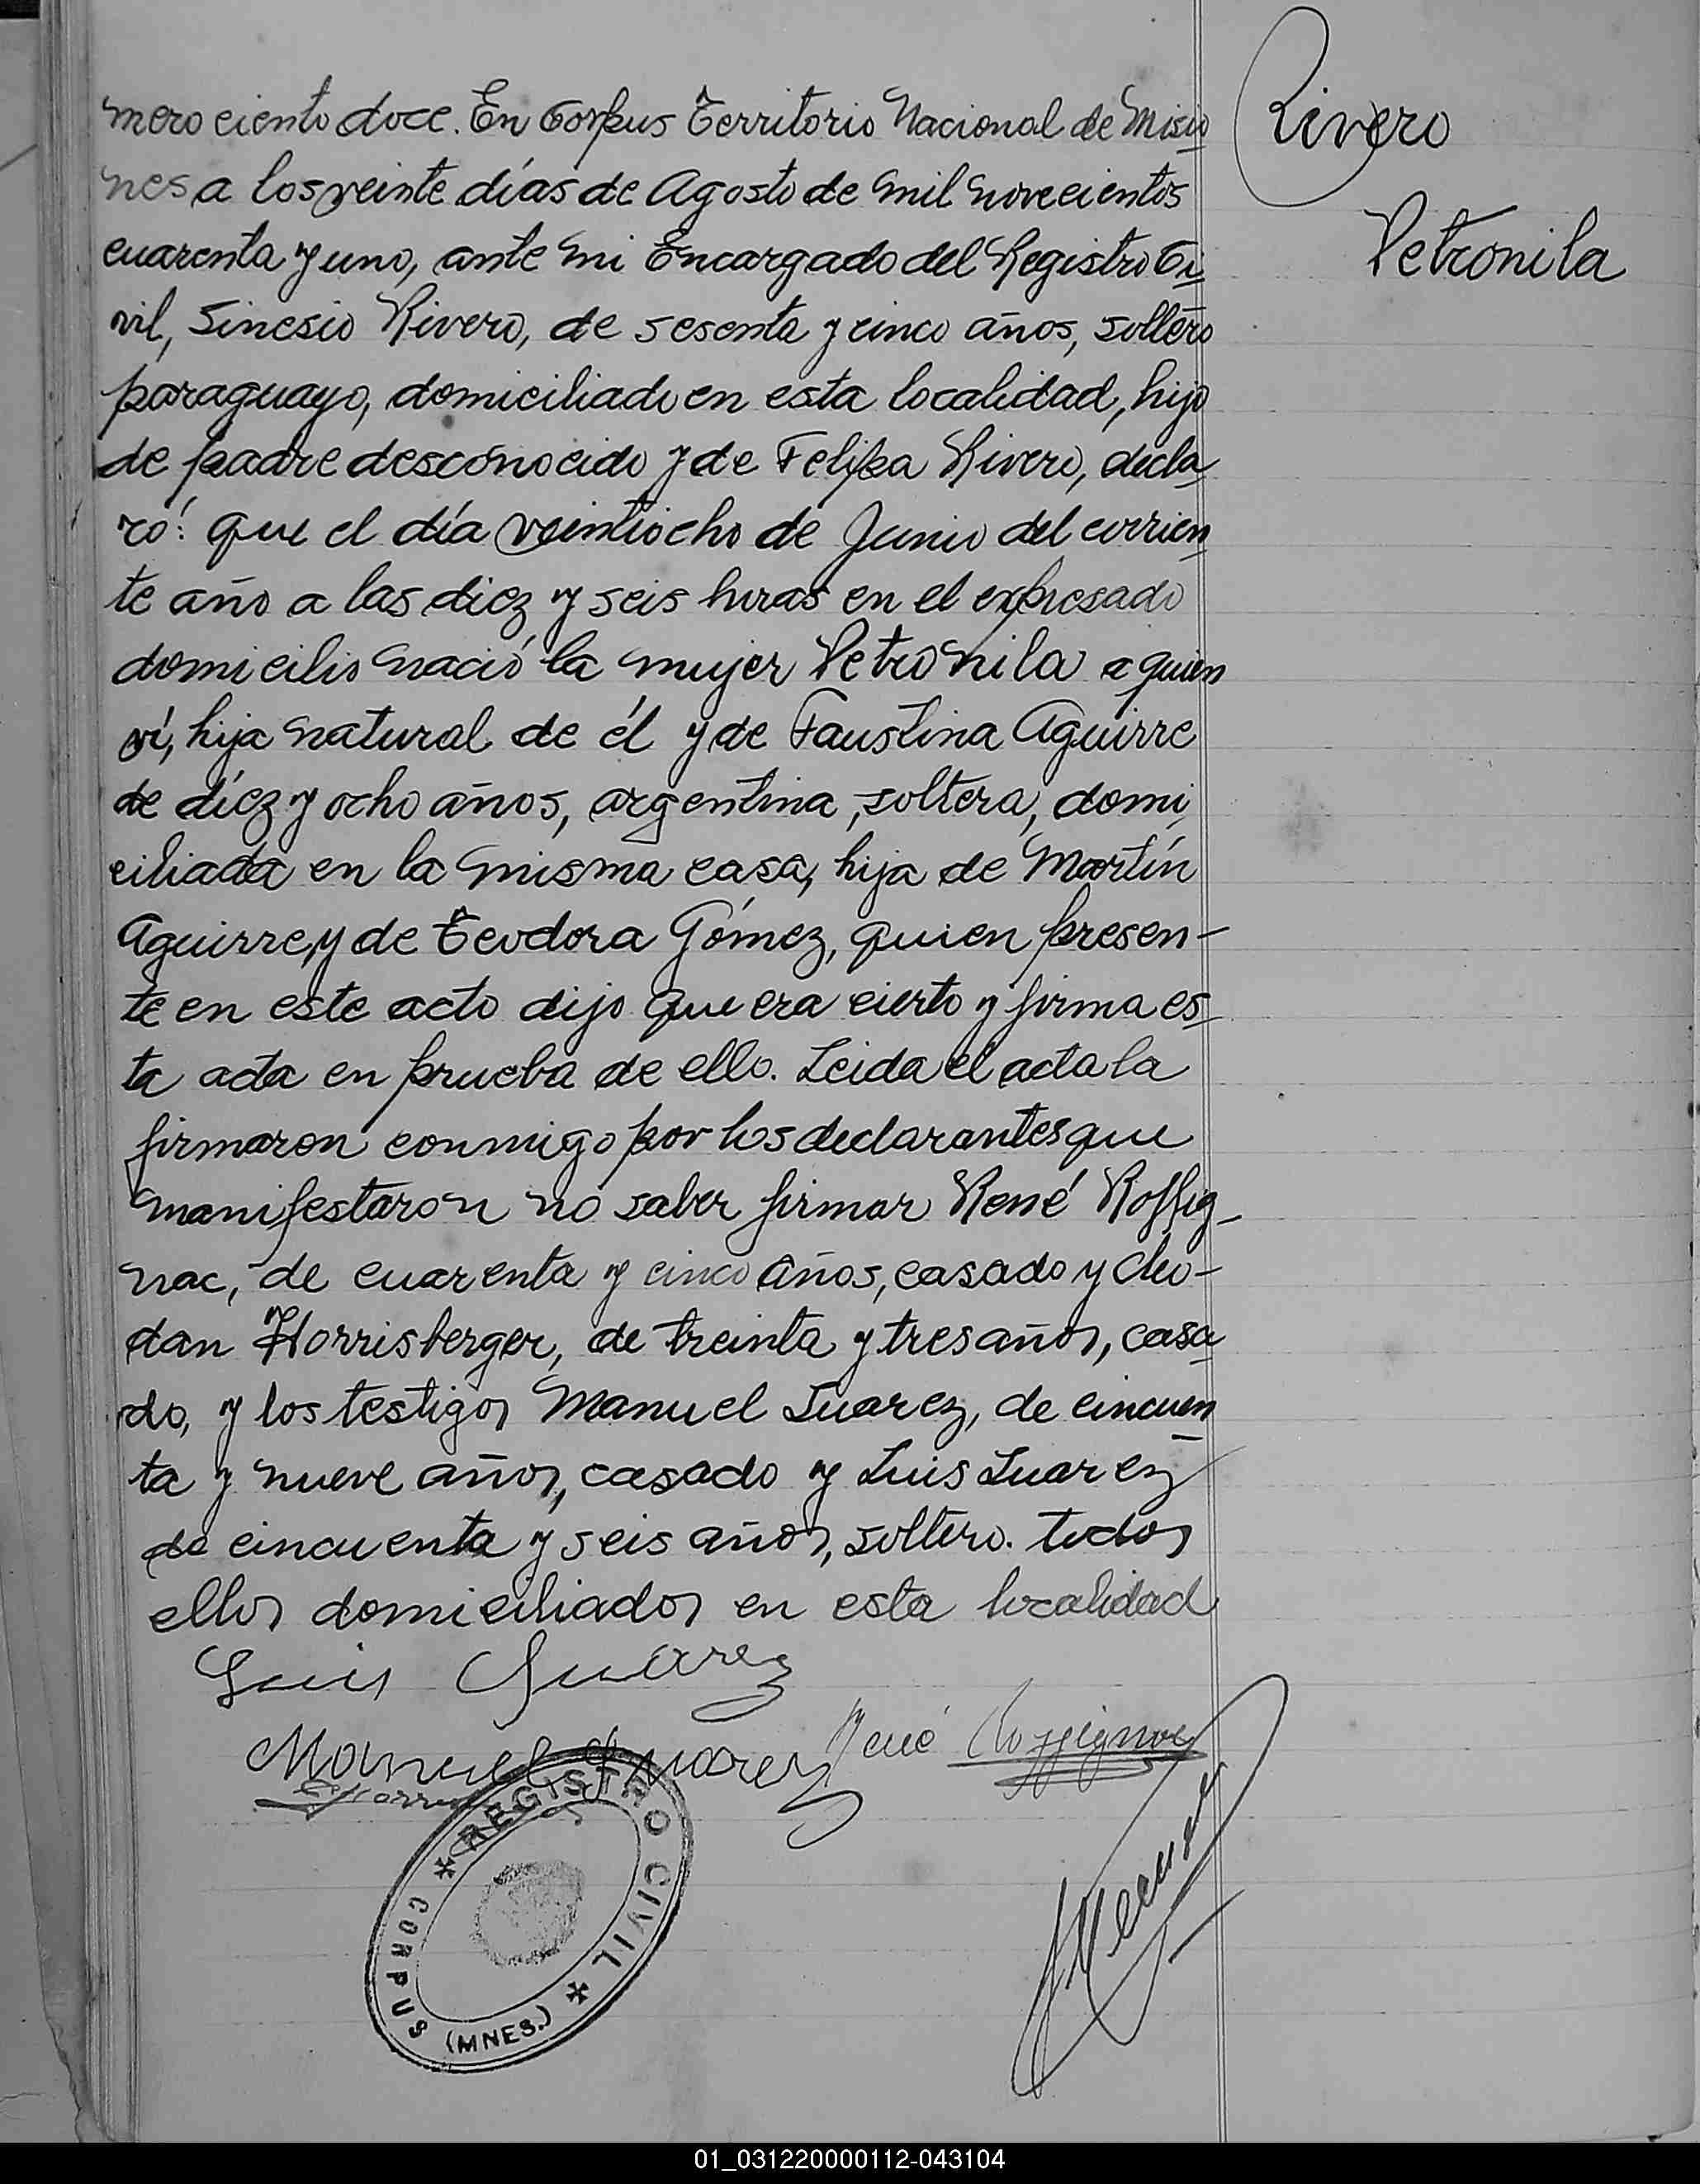 mero ciento doce. En Corpus Territorio Nacional de Misio
nes a los veinte días de Agosto de mil novecientos
cuarenta y uno, ante mi Encargado del Registro Ci
vil, Sinesio Rivero, de sesenta y cinco años, soltero
paraguayo, domiciliado en esta localidad, hijo
de padre desconocido y de Felipa Rivero, decla
ró: que el día veintiocho de Junio del corrien
te año a las diez y seis horas en el expresado
domicilio nació la mujer Petronila a quien
vi, hija natural de él y de Faustina Aguirre
de diez y ocho años, argentina, soltera, domi
ciliada en la misma casa, hija de Martín
Aguirre, y de Teodora Gómez, quien presen-
te en este acto dijo que era cierto y firma es
ta acta en prueba de ello. Leida el acta la
firmaron conmigo por los declarantes que
manifestaron no saber firmar René Roffig-
nac, de cuarenta y cinco años, casado y Cleo-
dan Horrisberger, de treinta y tres años, casa
do, y los testigos Manuel Suarez, de cincuen
ta y nueve años, casado y Luis Suarez
de cincuenta y seis años, soltero. todos
ellos domiciliados en esta localidad
Rivero
Petronila
Luis Suárez
Manuel Suarez
René Roffignac
REGISTRO CIVIL
CORPUS (MNES.)
01_031220000112-043104